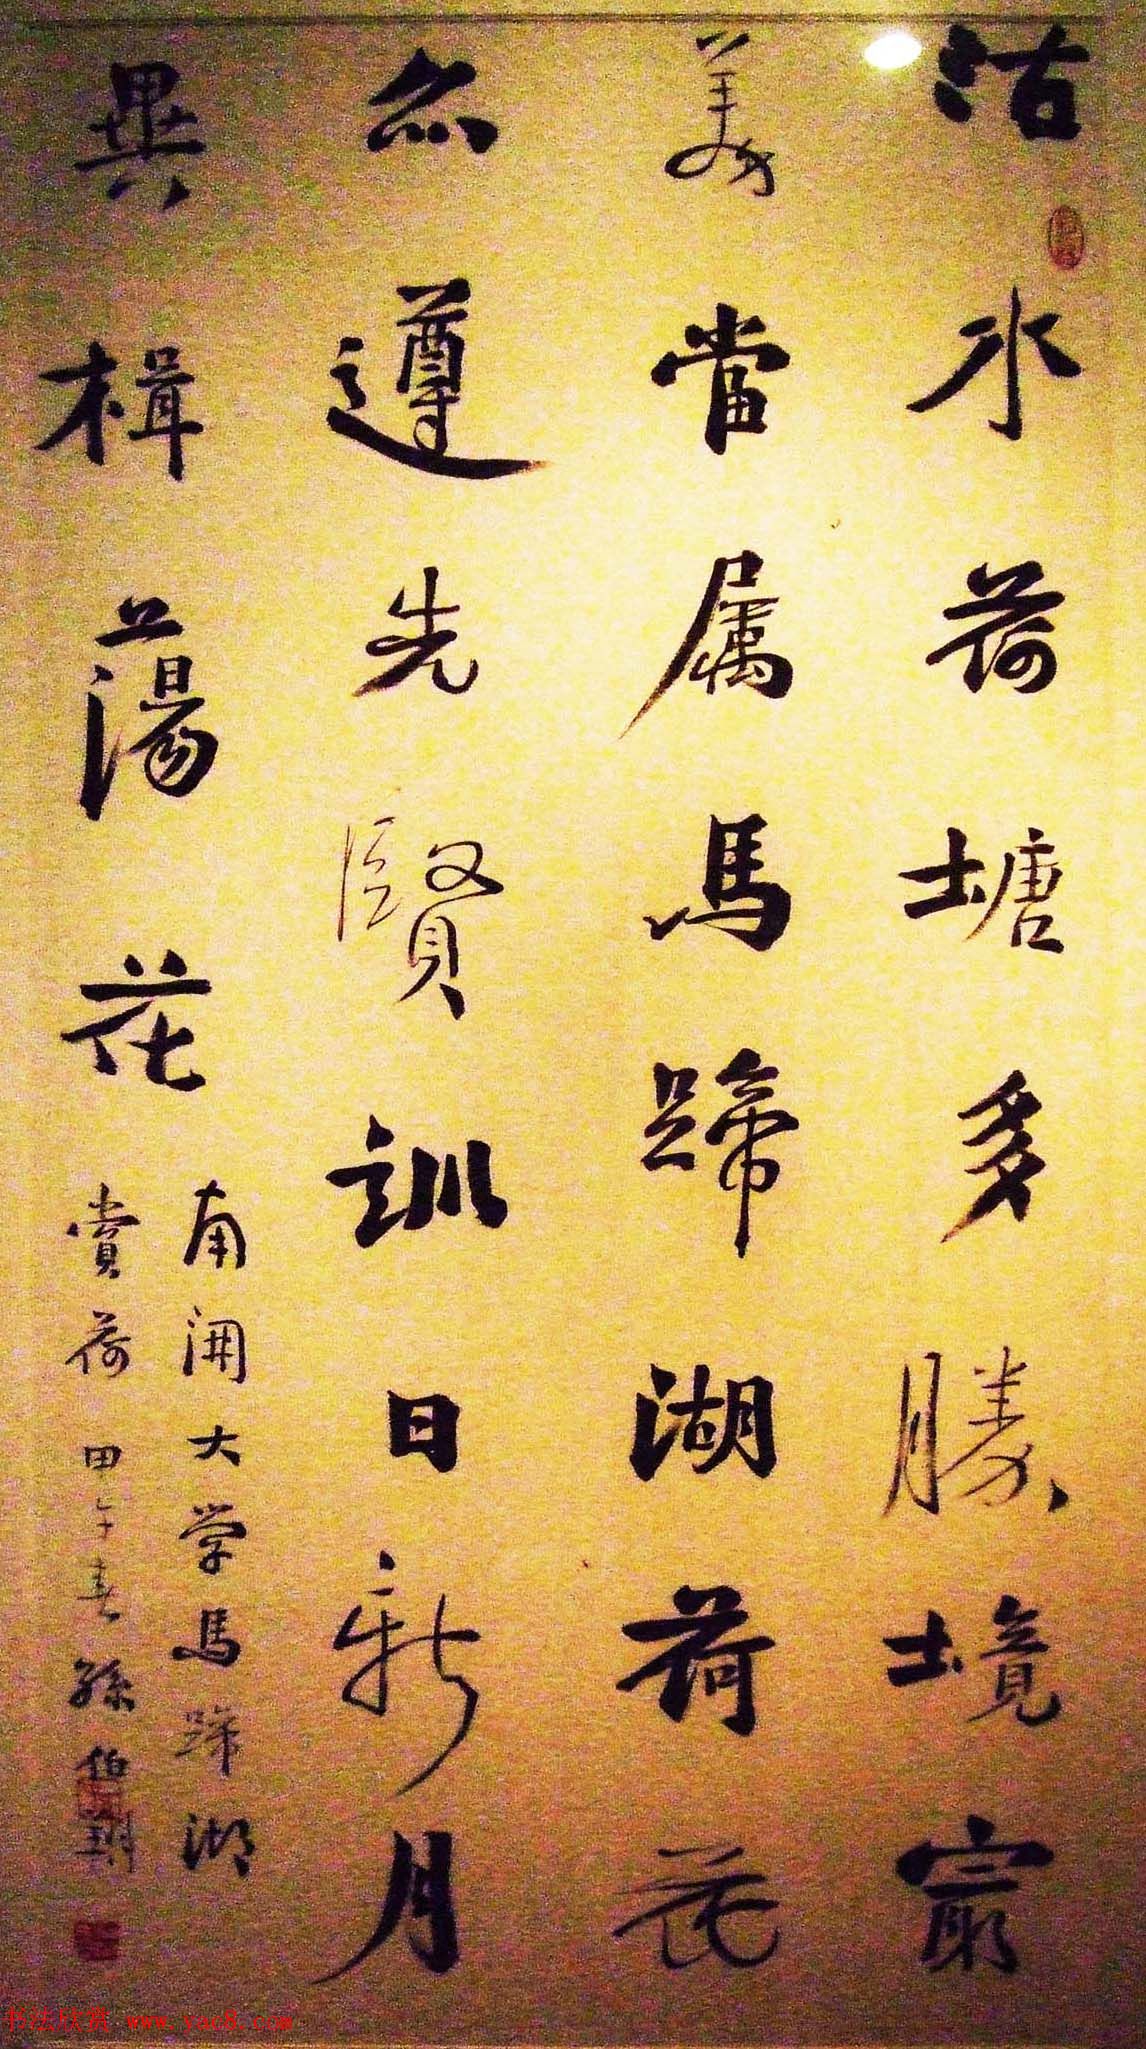 沽水荷塘多勝境寂
美當属馬蹄湖荷花
亦遵先賢訓日新月
異楫蕩花
南開大学馬蹄湖
賞荷甲午春孫伯翔
书法欣赏 www.yac8.com